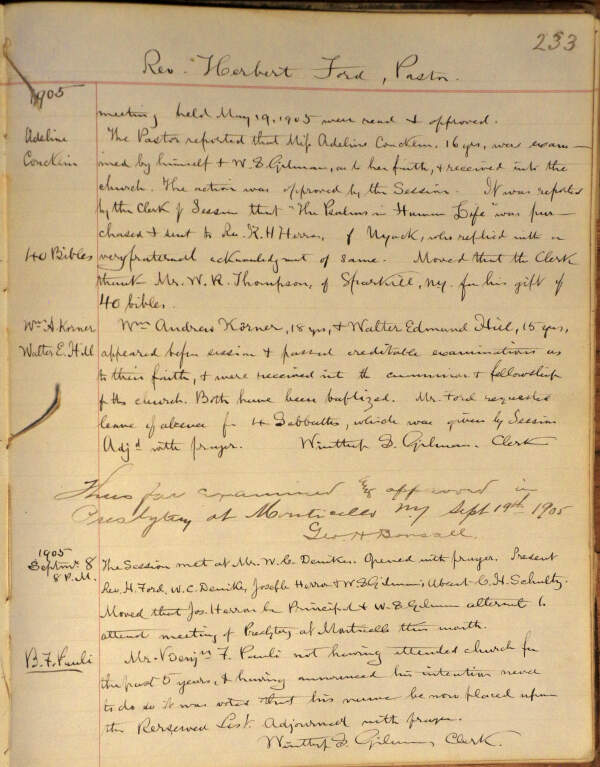 233
Rev. Herbert Ford, Pastor.
1905
meeting held May 19, 1905 were read & approved.
Adeline
Concklin
The Pastor reported that Miss Adeline Concklin, 16 yrs, were exam-
ined by himself & W. S. Gilman, as to her faith, & received into the
church. The action was approved by the Session. It was reported
by the Clerk of Session that "The Psalms in Human Life" was pur-
chased & sent to Rev. R. H. Herron, of Nyack, who replied with a
40 Bibles
very fraternal acknowledgment of same. Moved that the Clerk
thank Mr. W. R. Thompson, of Sparkill, N.Y. for his gift of
40 bibles.
Wm. A. Korner
Walter E. Hill
Wm Andrew Korner, 18 yrs, & Walter Edmund Hill, 15 yrs,
appeared before session & passed creditable examinations as
to their faith, & were received into the communion & fellowship
of the church. Both have been baptized. Mr. Ford requested
leave of absence for 4 Sabbaths, which was given by Session
Adjd with prayer. Winthrop S. Gilman. Clerk
Thus far examined & approved in
Presbytery at Monticello NY Sept 19th 1905
Geo. H. Bonsall.
1905
Septmr. 8
8 P.M.
The Session met at Mr. W. C. Denike. Opened with prayer. Present
Rev. H. Ford, W. C. Denike, Joseph Herron & W S Gilman; Absent C. H. Schultz.
Moved that Jos. Herron be Principal & W. S. Gilman alternat to
attend meeting of Presbytery at Monticello this month.
B. F. Pauli
Mr. Benjn F. Pauli not having attended church for
the past 5 years, & having announced his intention never
to do so it was voted that his name be now placed upon
the Reserved List. Adjourned with prayer.
Winthrop S. Gilman, Clerk.